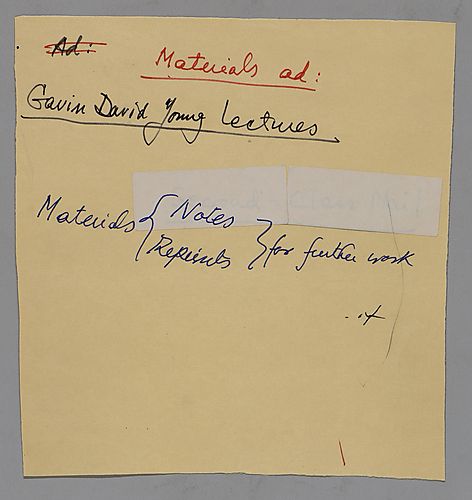 Ad:
Materials ad:
Gavin David Young Lectures
Materials { Notes
Reprints } for further work